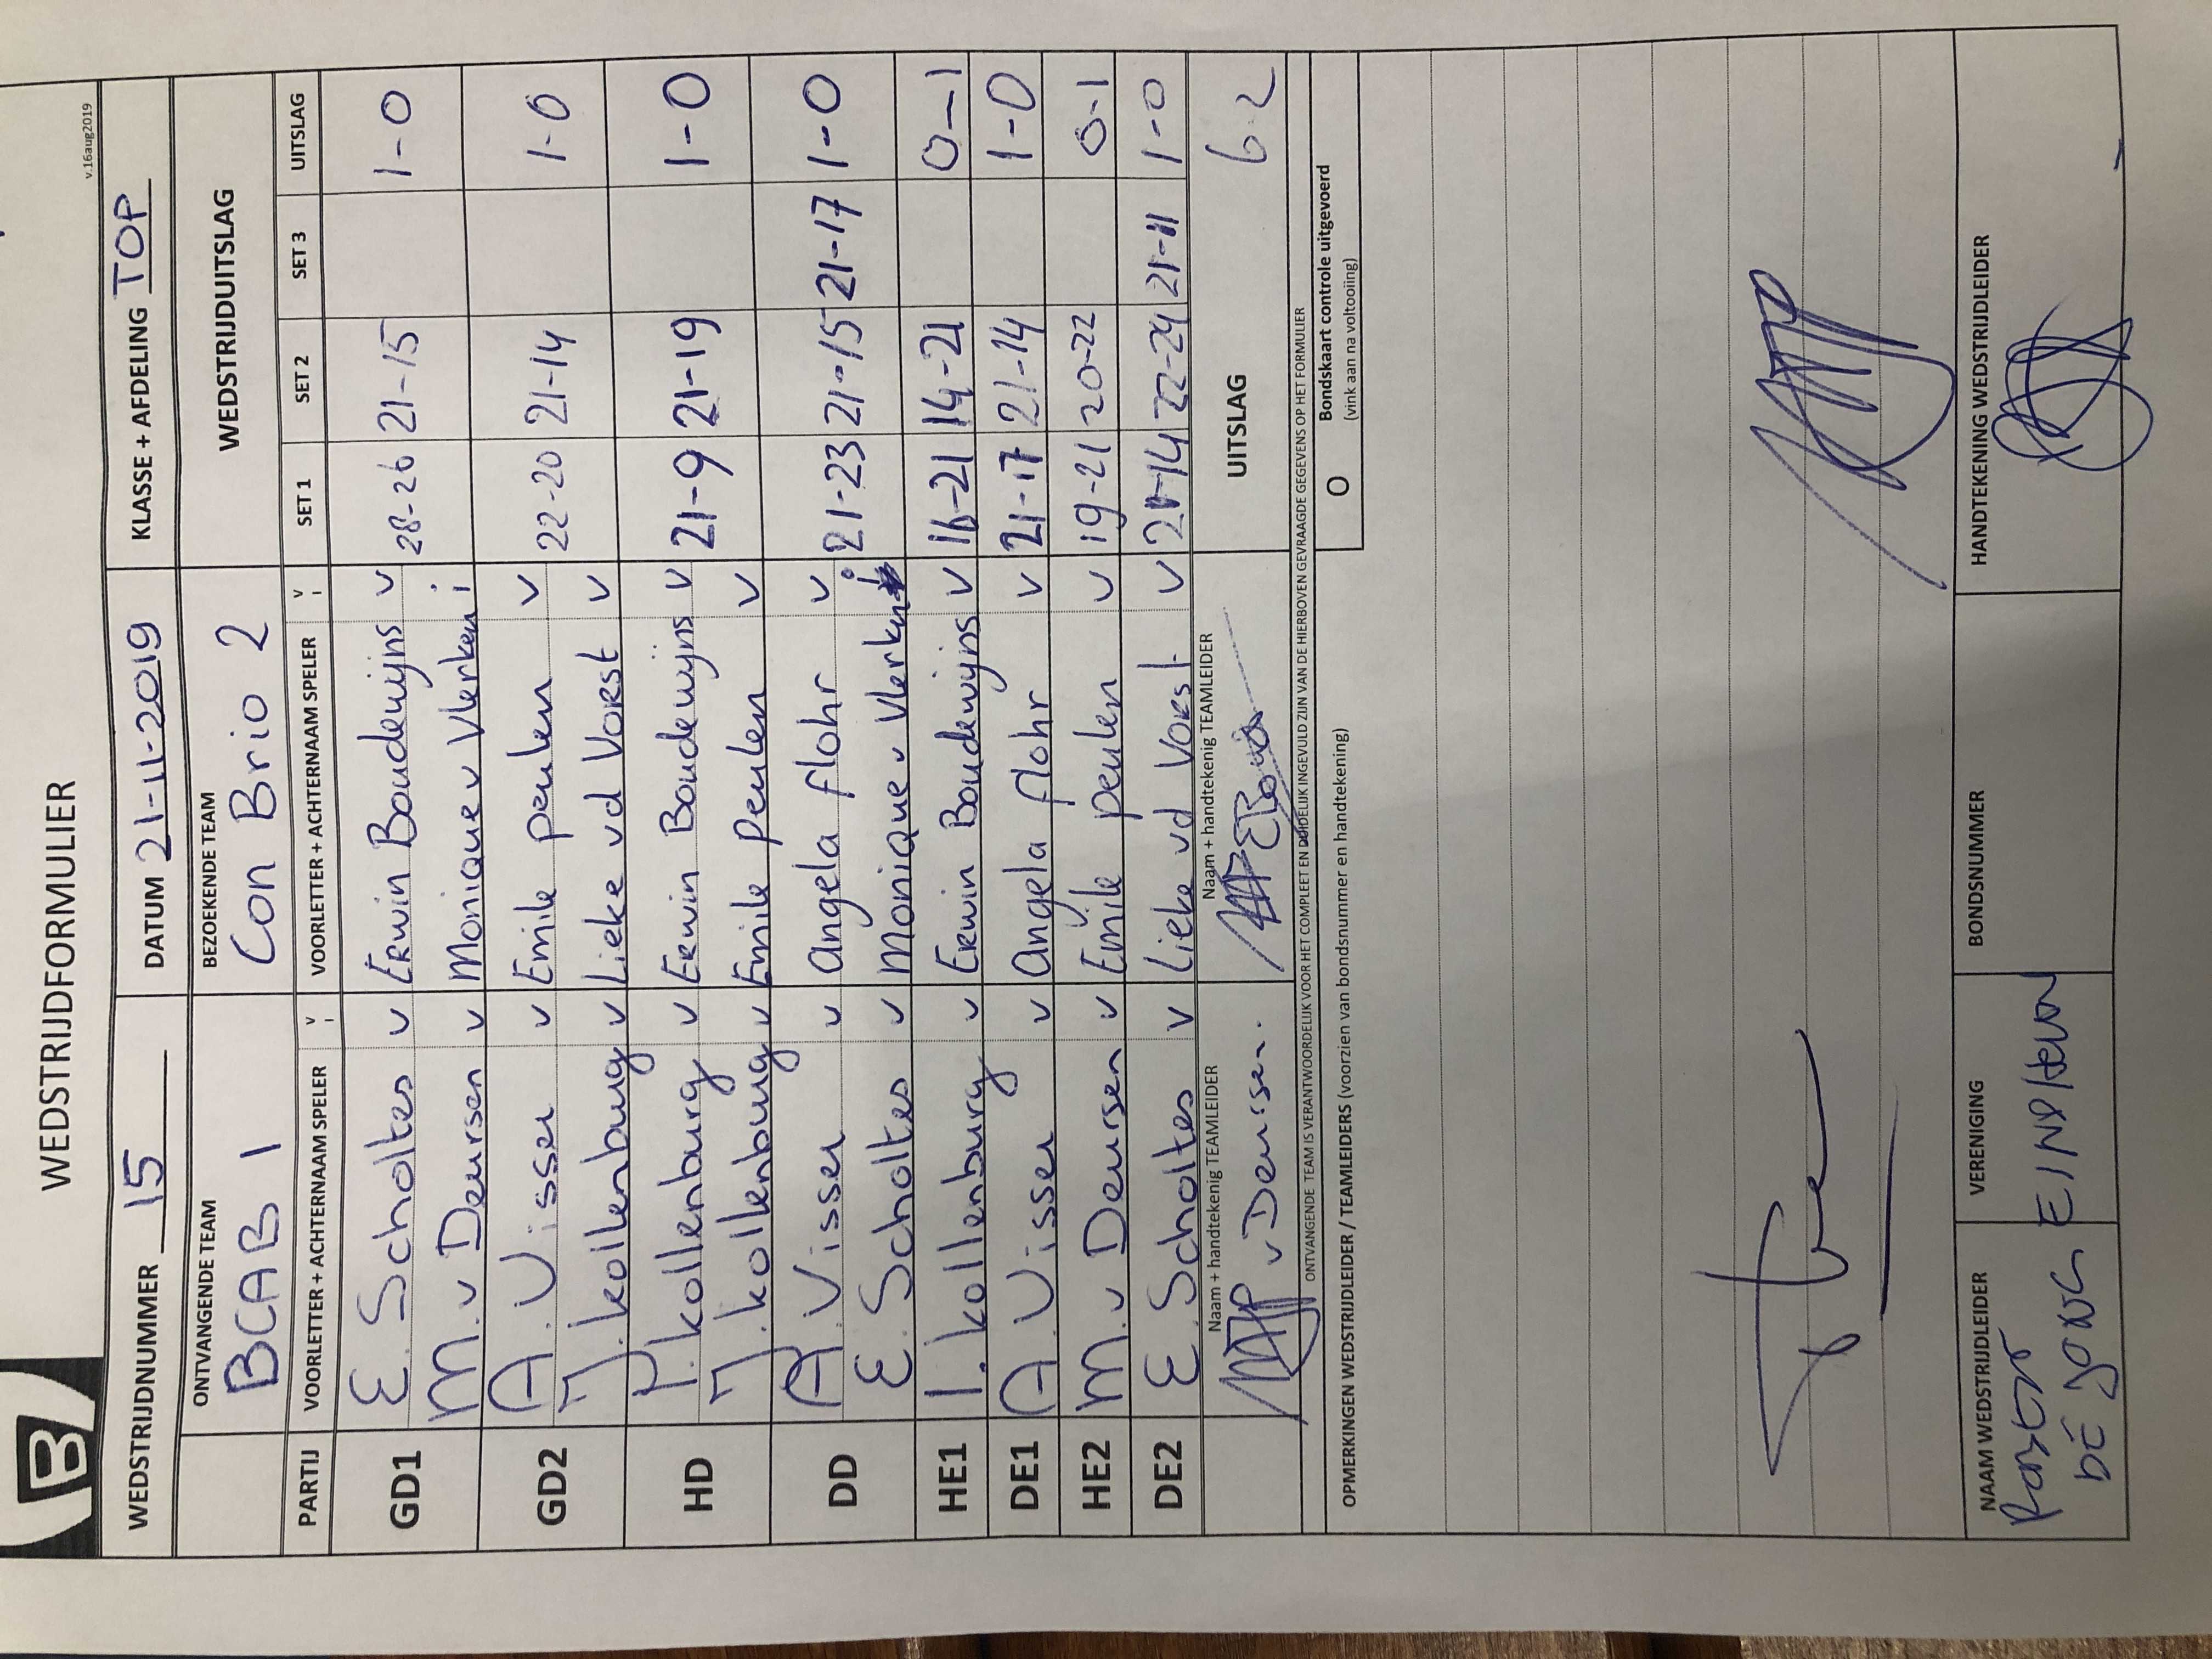 WEDSTRIJDFORMULIER
v.16aug2019
B
WEDSTRIJDNUMMER 15 DATUM 21-11-2019 KLASSE + AFDELING TOP
ONTVANGENDE TEAM BEZOEKENDE TEAM WEDSTRIJDUITSLAG
BCAB 1 Con Brio 2
PARTIJ VOORLETTER + ACHTERNAAM SPELER V VOORLETTER + ACHTERNAAM SPELER V SET 1 SET 2 SET 3 UITSLAG
GD1 E. Scholtes v Erwin Boudewijns v 28-26 21-15 1-0
M. v Deursen v Monique v Vlerken i
GD2 A. Visser v Emile peulen v 22-20 21-14 1-0
J. kollenburg v Lieke vd Vorst v
HD kollenburg v Erwin Boudewijns v 21-9 21-19 1-0
J. kollenburg v Emile peulen v
DD A. Visser v angela flohr v 21-23 21-15 21-17 1-0
E. Scholtes v Monique v Vlerken i
HE1 kollenburg v Erwin Boudewijns v 16-21 14-21 0-1
DE1 A Visser v angela flohr v 21-17 21-14 1-0
HE2 M. v Deursen v Emile peulen v 19-21 20-22 0-1
DE2 E. Scholtes v Lieke vd Vorst v 21-14 22-24 21-11 1-0
Naam + handtekenig TEAMLEIDER Naam + handtekenig TEAMLEIDER UITSLAG 6-2
v Deursen.
ONTVANGENDE TEAM IS VERANTWOORDELIJK VOOR HET COMPLEET EN DUIDELIJK INGEVULD ZIJN VAN DE HIERBOVEN GEVRAAGDE GEGEVENS OP HET FORMULIER
OPMERKINGEN WEDSTRIJDLEIDER / TEAMLEIDERS (voorzien van bondsnummer en handtekening)
O Bondskaart controle uitgevoerd
(vink aan na voltooiing)
NAAM WEDSTRIJDLEIDER VERENIGING BONDSNUMMER HANDTEKENING WEDSTRIJDLEIDER
DE JONG